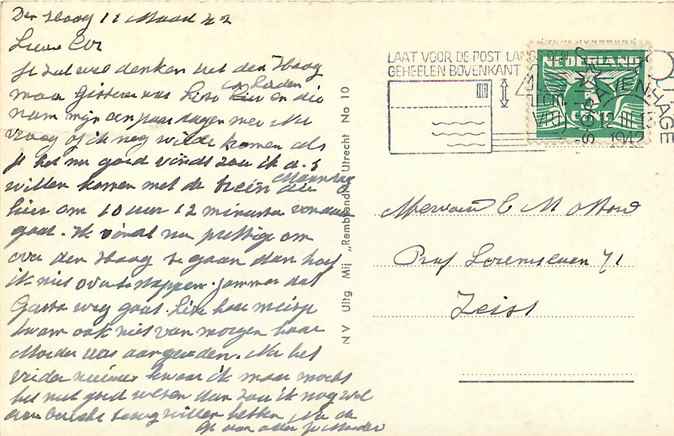 Den Haag 11 Maart 42
Lieve Cor
Je zal wel denken uit den Haag
maar gisteren was Lien in Leiden en die
nam mijn een paar dagen mee. Nu
vroeg of ik nog wilde komen als
je het nu goed vindt zou ik d.s
willen komen met de trein die Maandag
hier om 10 uur 12 minuten vandaan
gaat. Ik vind nu prettige om
over den Haag te gaan dan hoef
ik niet over te stappen. Jammer dat
weg gaat. Lien haar meisje
kwam ook niet van morgen haar
Moeder was Nu het
weer kwam ik maar mocht
het niet goed wezen dan zou ik nog wel
een bericht terug willen hebben. Nu de
van allen je Moeder
NV Uitg Mij „Rembrandt" Utrecht No 10
LAAT VOOR DE POST
GEHEELEN BOVENKANT
NEDERLAND
5 CENT
'S GRAVENHAGE
12 III
1942
Mevrouw E M
Prof Lorentzlaan 71
Zeist